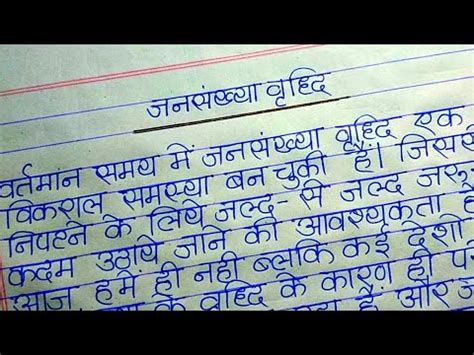 जनसंख्या वृध्दि
वर्तमान समय में जनसंख्या वृध्दि एक
विकराल समस्या बन चुकी हैं। जिससे
निपटने के लिये जल्द-से जल्द जरू-
कदम उठाये जाने की आवश्यकता ह
आज हमें ही नही ब्लकि कई देशो
के वृध्दि के कारण ही प
हैं और ज